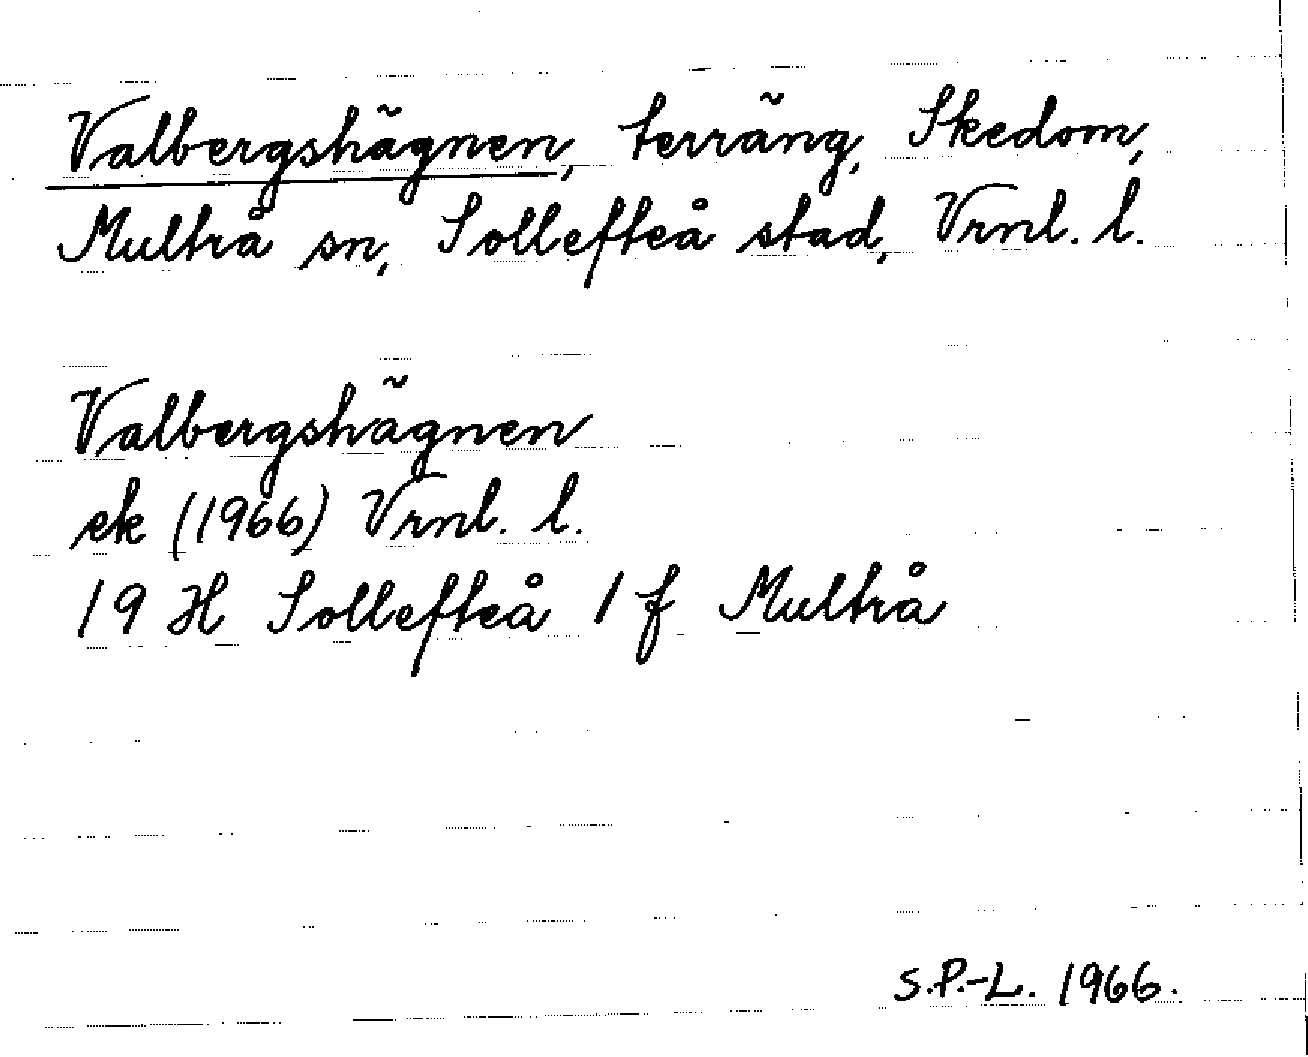 Valbergshägnen, terräng, Skedom,
Multrå sn, Sollefteå stad, Vrnl. l.
Valbergshägnen
ek (1966) Vrnl. l.
19 H Sollefteå 1 f Multrå
S.P.-L. 1966.